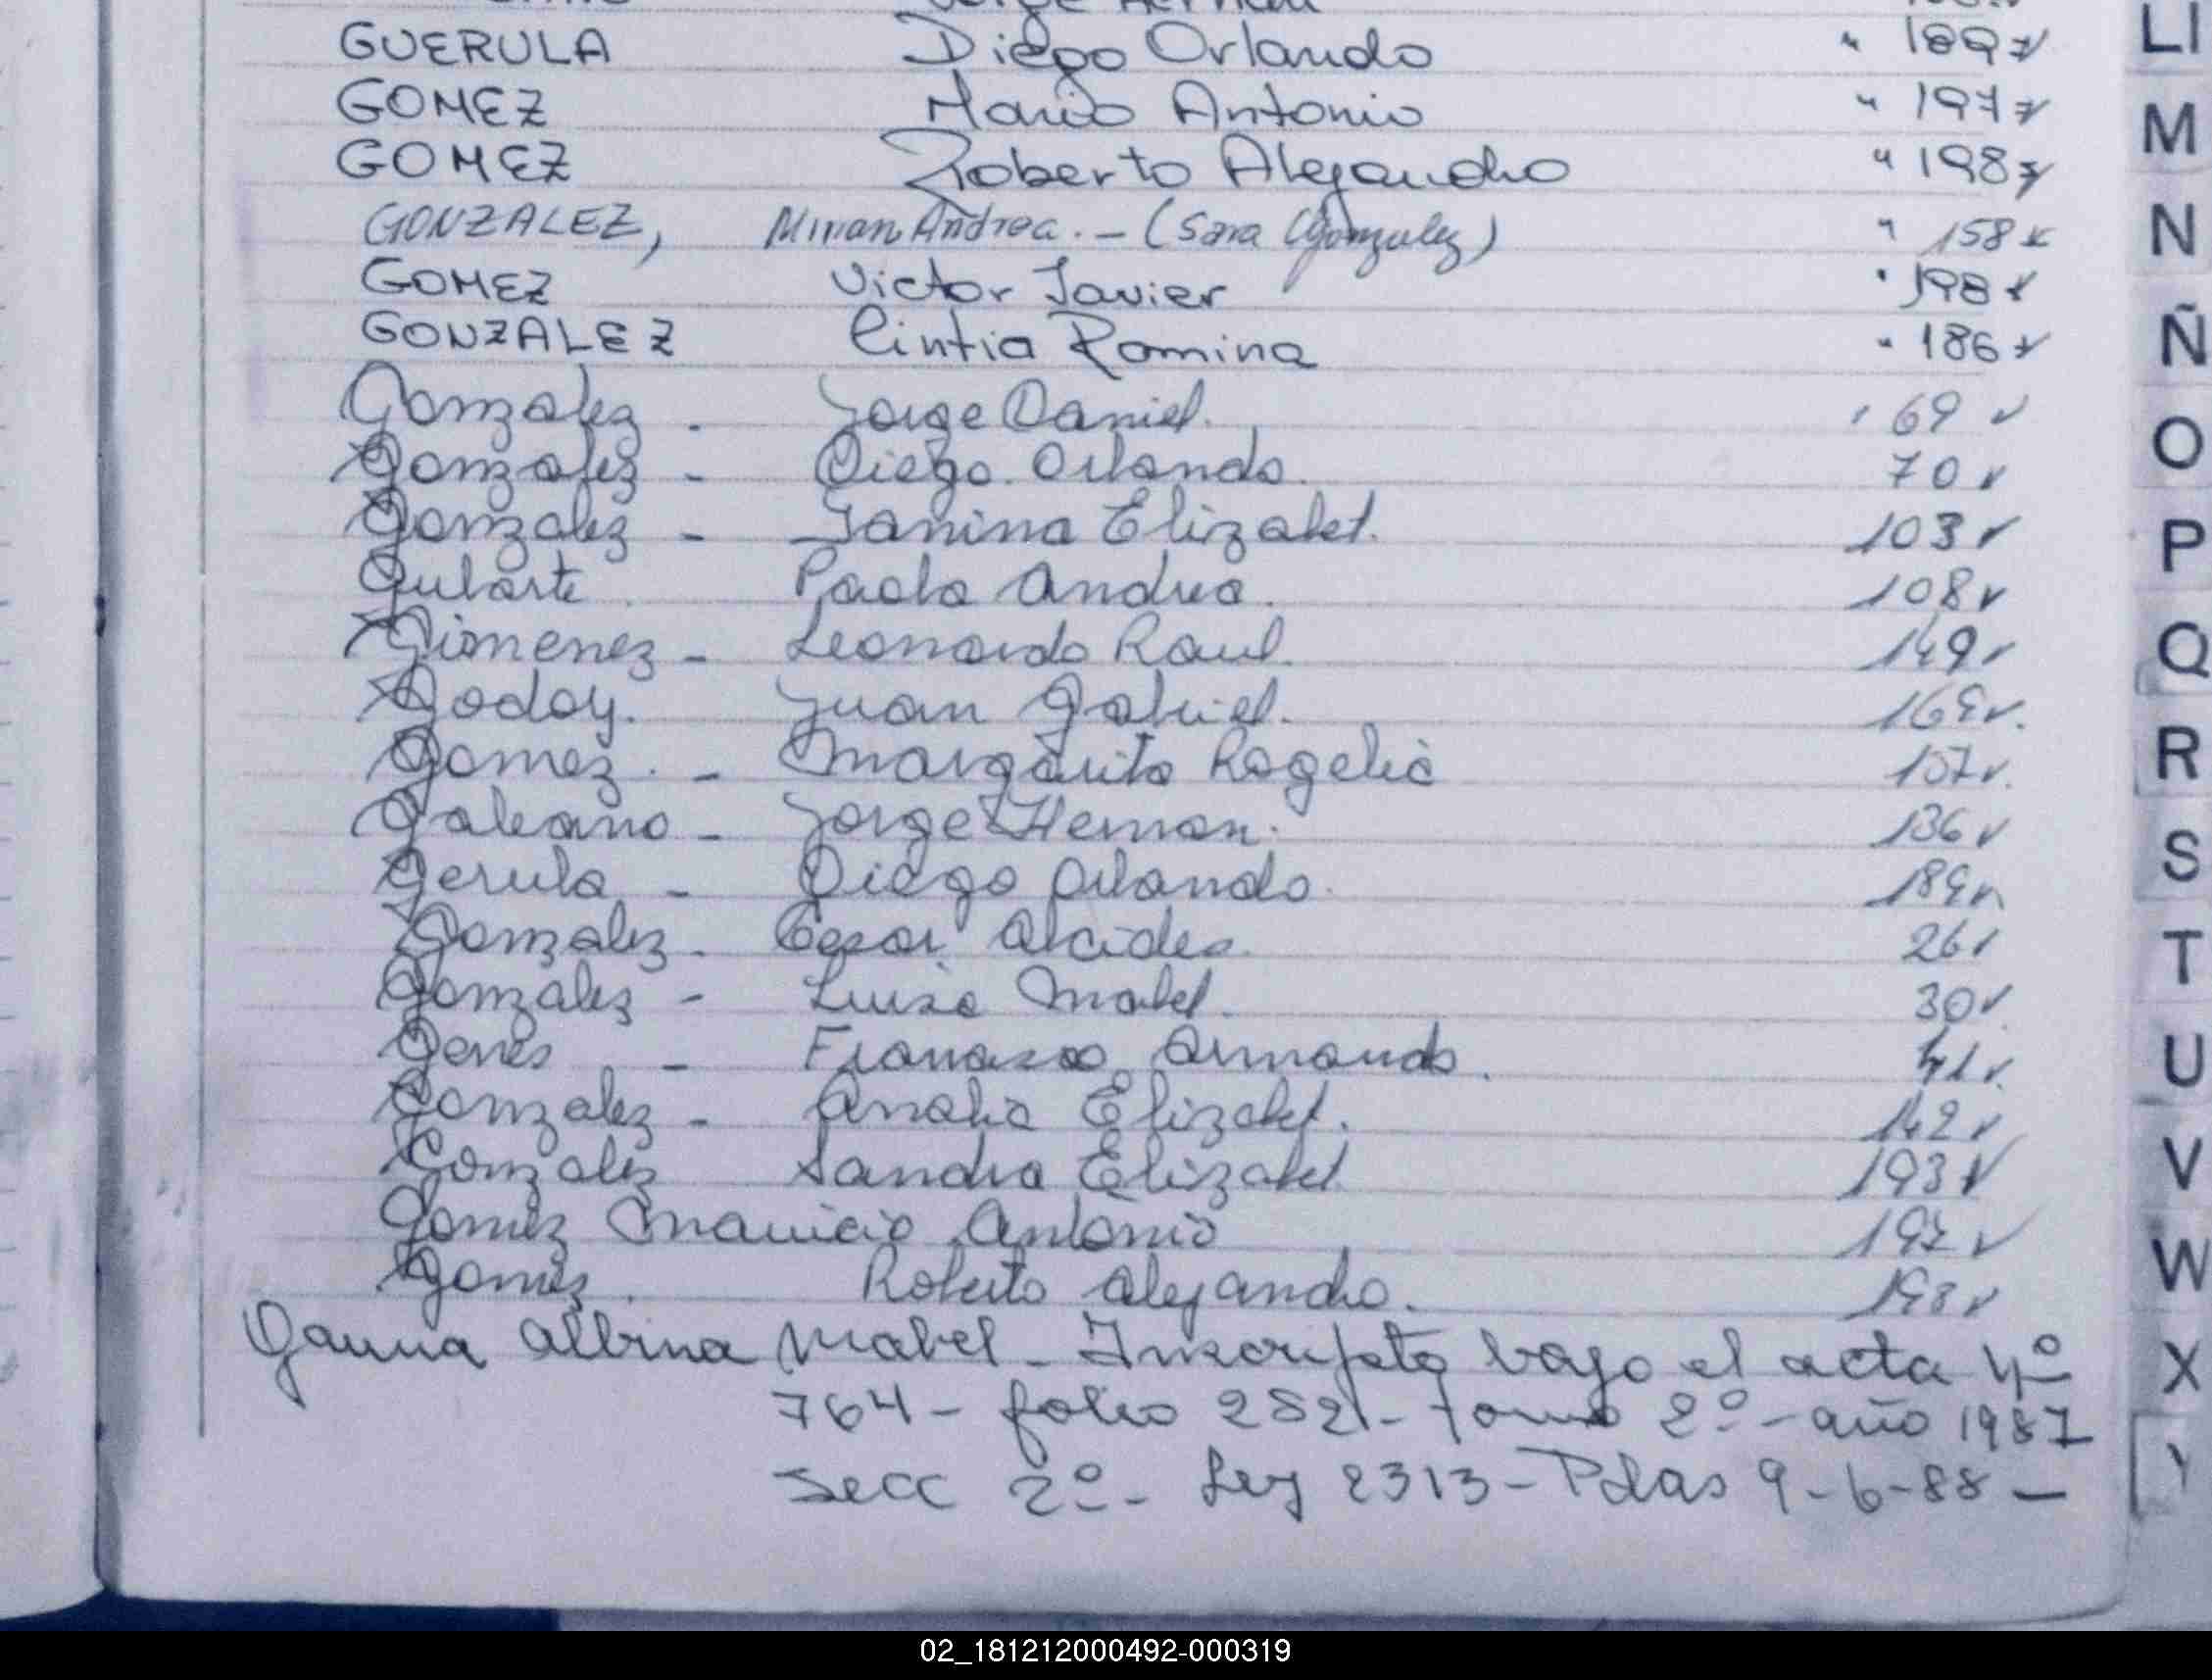 GUERULA Diego Orlando " 189
GOMEZ Mario Antonio " 197
GOMEZ Roberto Alejandro " 198
GONZALEZ, Mirian Andrea. - (Sara Gonzalez) " 158
GOMEZ Victor Javier " 198
GONZALEZ Cintia Romina " 186
Gonzalez - Jorge Daniel. 69 v
Gonzalez - Diego Orlando. 70 v
Gonzalez - Janina Elizabet. 103 v
Gularte Paola Andrea. 108 v
Gimenez - Leonardo Raul. 149 v
Godoy. Juan Gabriel. 169 v.
Gomez. - Margarita Rogelia 157 v.
Galeano - Jorge Hernan. 136 v
Gerula - Diego Orlando. 189 v
Gonzalez - Cesar Alcides. 26 v
Gonzalez - Luisa Mabel. 30 v
Genes - Francisco Armando. 41 v.
Gonzalez - Analia Elizabet. 142 v
Gonzalez Sandra Elizabet 193 v
Gomez Mauricio Antonio 197 v
Gomez. Roberto Alejandro. 198 v
Gauna Albina Mabel - Inscripta bajo el acta Nº
764 - folio 282 - tomo 2º - año 1987
Secc 2º - Ley 2313 - Pdas 9-6-88 -
LI
M
N
Ñ
O
P
Q
R
S
T
U
V
W
X
Y
02_181212000492-000319